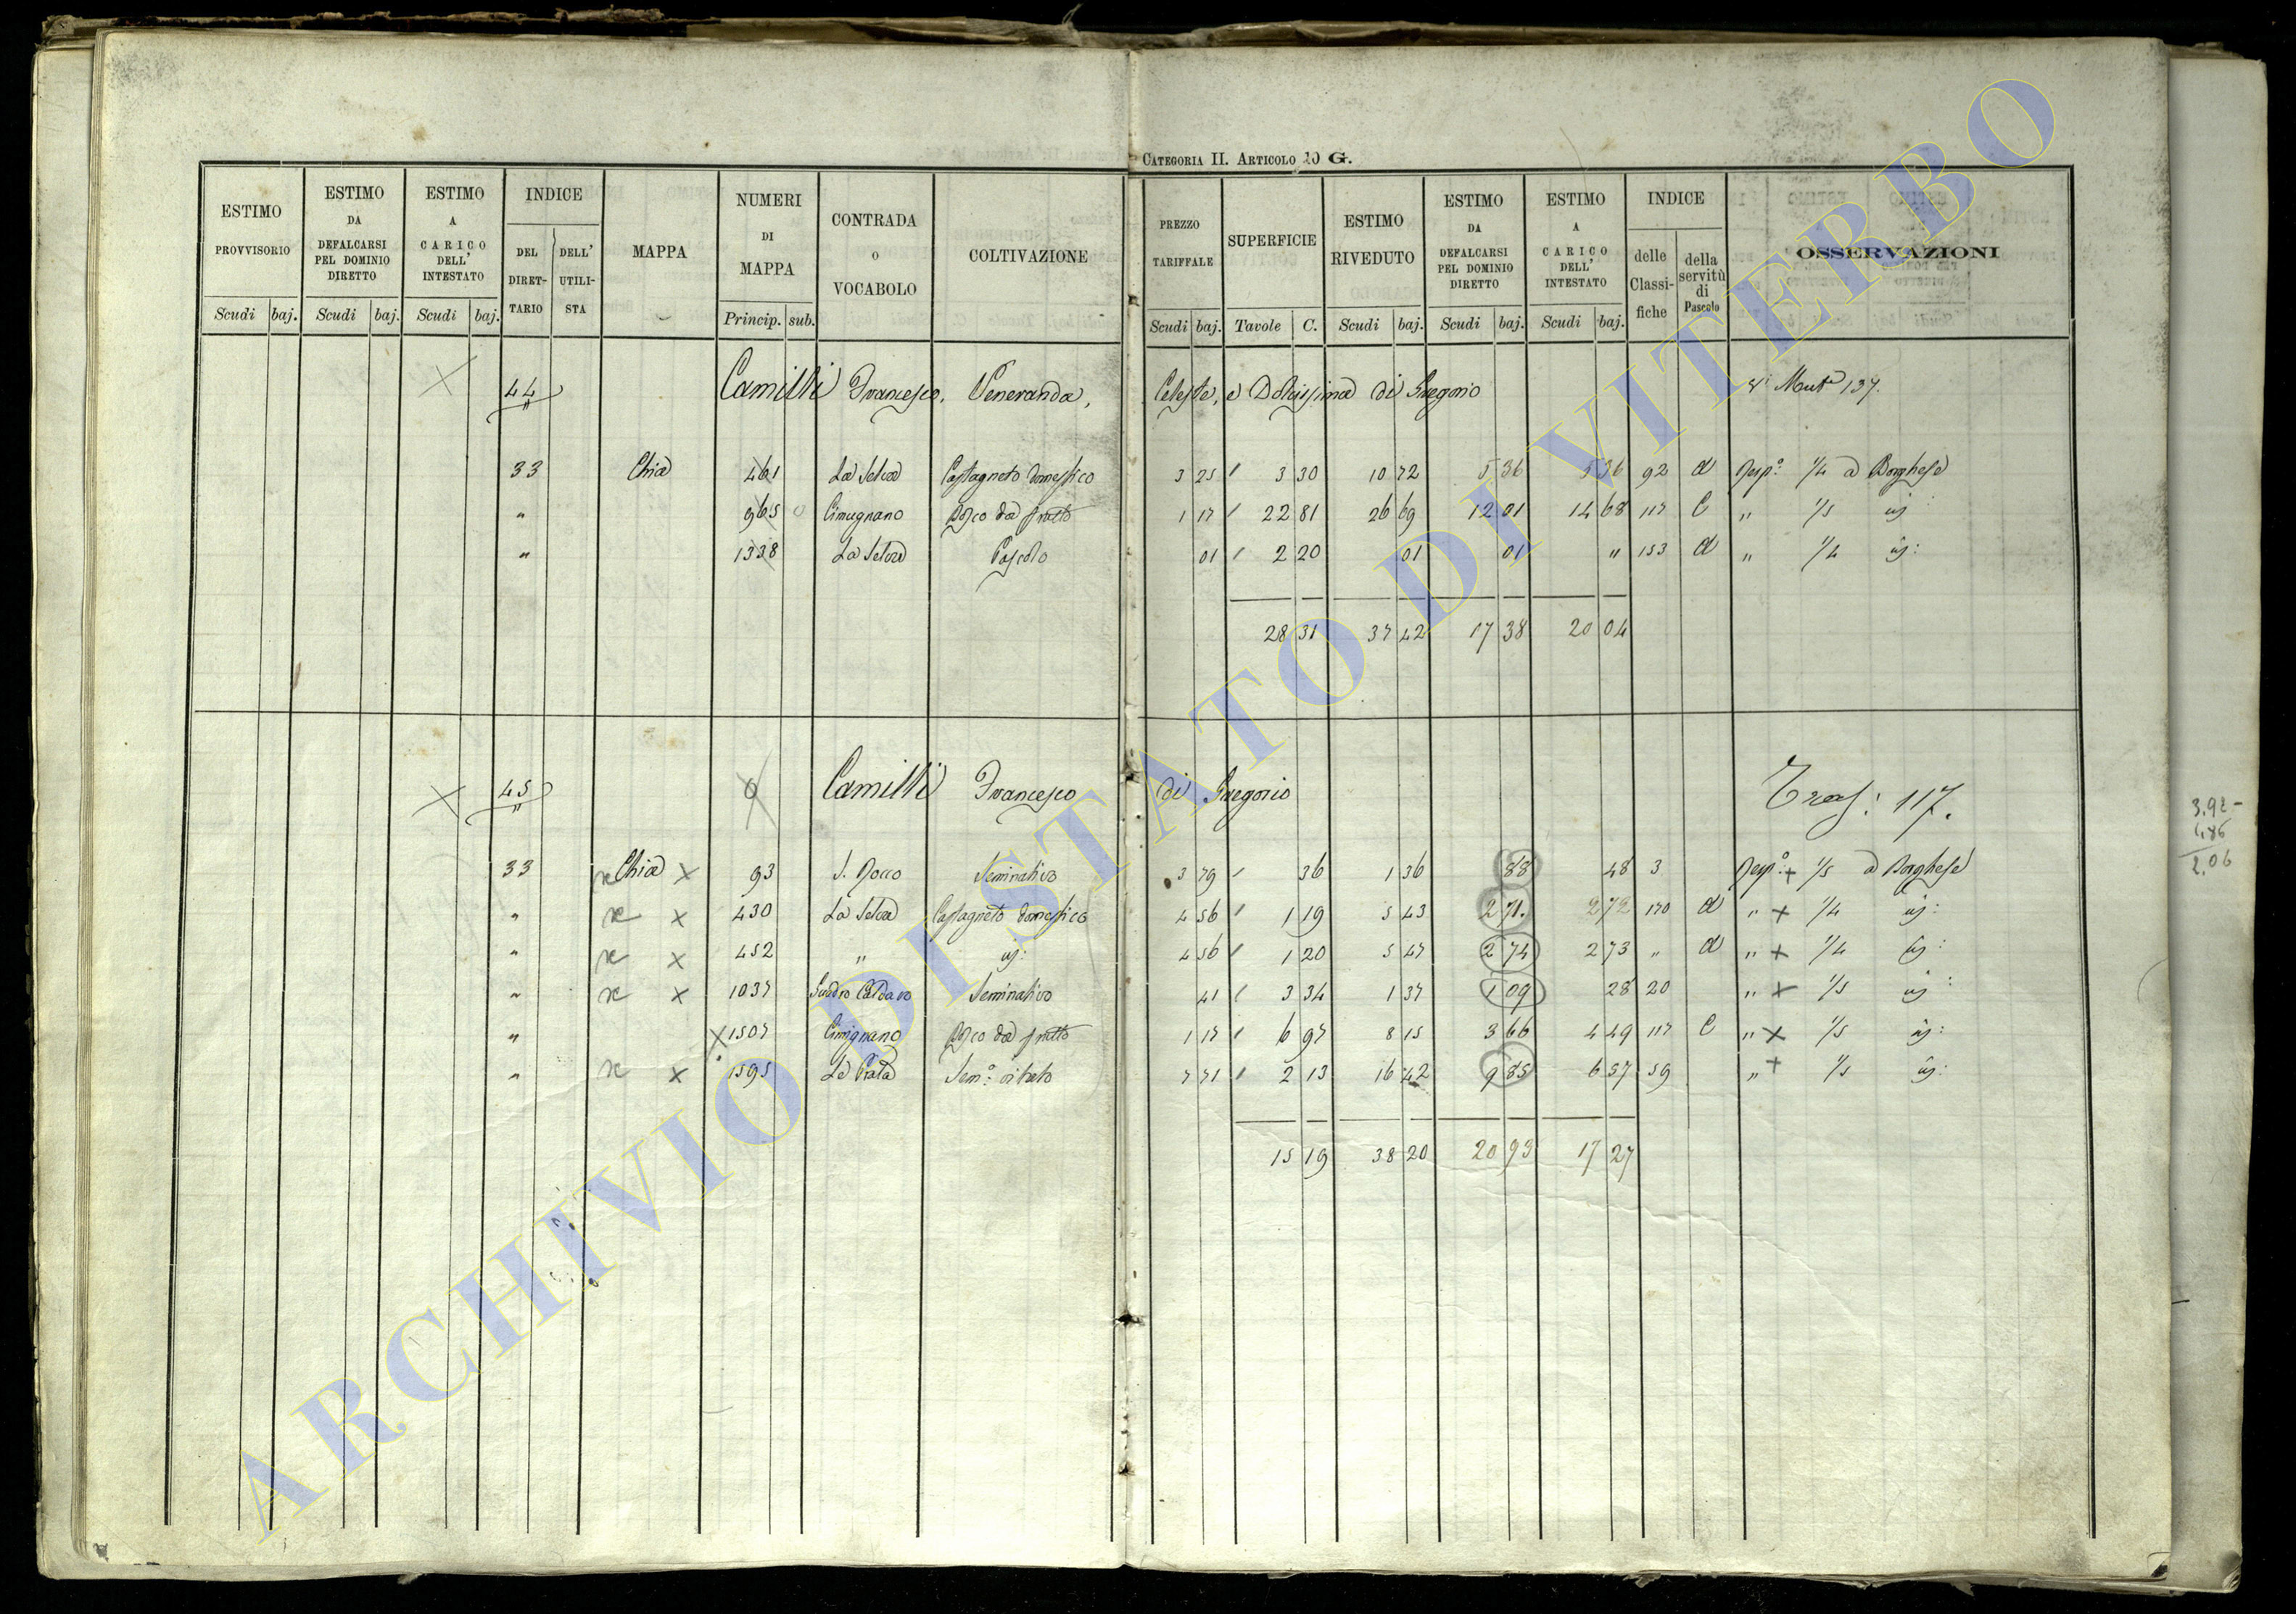 CATEGORIA II. ARTICOLO 10 G.
ESTIMO PROVVISORIO | ESTIMO DA DEFALCARSI PEL DOMINIO DIRETTO | ESTIMO A CARICO DELL' INTESTATO | INDICE DEL DIRETTARIO | DELL' UTILISTA | MAPPA | NUMERI DI MAPPA | CONTRADA O VOCABOLO | COLTIVAZIONE | PREZZO TARIFFALE | SUPERFICIE | ESTIMO RIVEDUTO | ESTIMO DA DEFALCARSI PEL DOMINIO DIRETTO | ESTIMO A CARICO DELL' INTESTATO | INDICE delle Classifiche | della servitù di Pascolo | OSSERVAZIONI
Scudi baj. Scudi baj. Scudi baj. Princip. sub. Scudi baj. Tavole C. Scudi baj. Scudi baj. Scudi baj.
44 Camilli Francesco, Veneranda, Celeste, e Dolcissima di Gregorio 137.
33 Chia 461 La Selva Castagneto domestico 3 25 3 30 10 72 5 36 5 36 92 d Risp: 1/4 a Borghese
" 965 Cimugnano Bosco da frutto 1 17 22 81 26 69 12 01 14 68 117 C " 1/5
" 1338 La Selva Pascolo 01 2 20 01 01 " 153 d " 1/4
28 31 37 42 17 38 20 04
45 Camilli Francesco di Gregorio Tras: 117.
33 Chia 93 S. Rocco Seminativo 3 79 36 1 36 88 48 3 Risp: 1/5 a Borghese
" 430 La Selva Castagneto domestico 4 56 1 19 5 43 2 71. 2 72 170 d " 1/4
" 452 " 4 56 1 20 5 47 2 74 2 73 " d " 1/4
" 1037 Seminativo 41 3 34 1 37 1 09 28 20 " 1/5
" 1507 Cimignano Bosco da frutto 1 17 6 97 8 15 3 66 4 49 117 C " 1/5
" 1595 Sem: vitato 7 71 2 13 16 42 9 85 6 57 59 " 1/5
15 19 38 20 20 93 17 27
2.06
ARCHIVIO DI STATO DI VITERBO